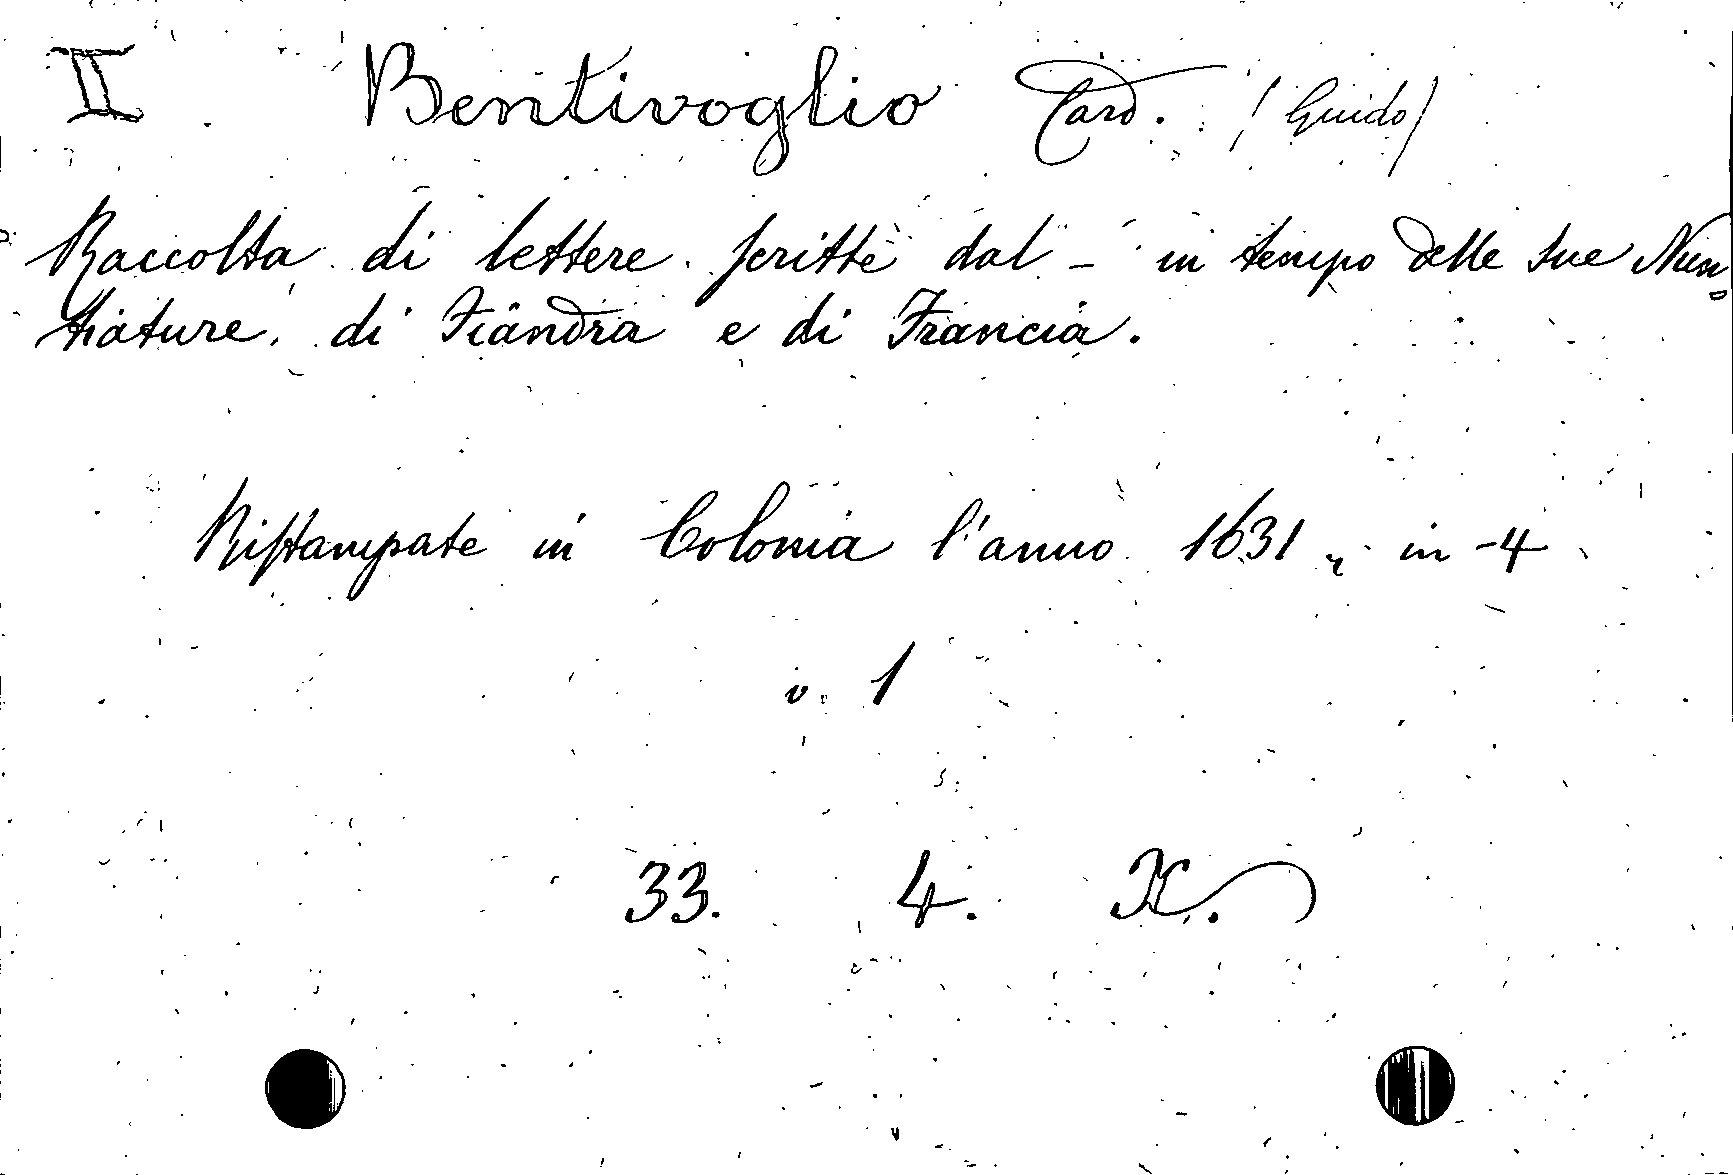 II Bentivoglio Card. (Guido)
Raccolta di lettere scritte dal - in tempo delle sue Nun=
tiature di Fiandra e di Francia.
Ristampate in Colonia l'anno 1631, in-4
v. 1
33. 4. K.